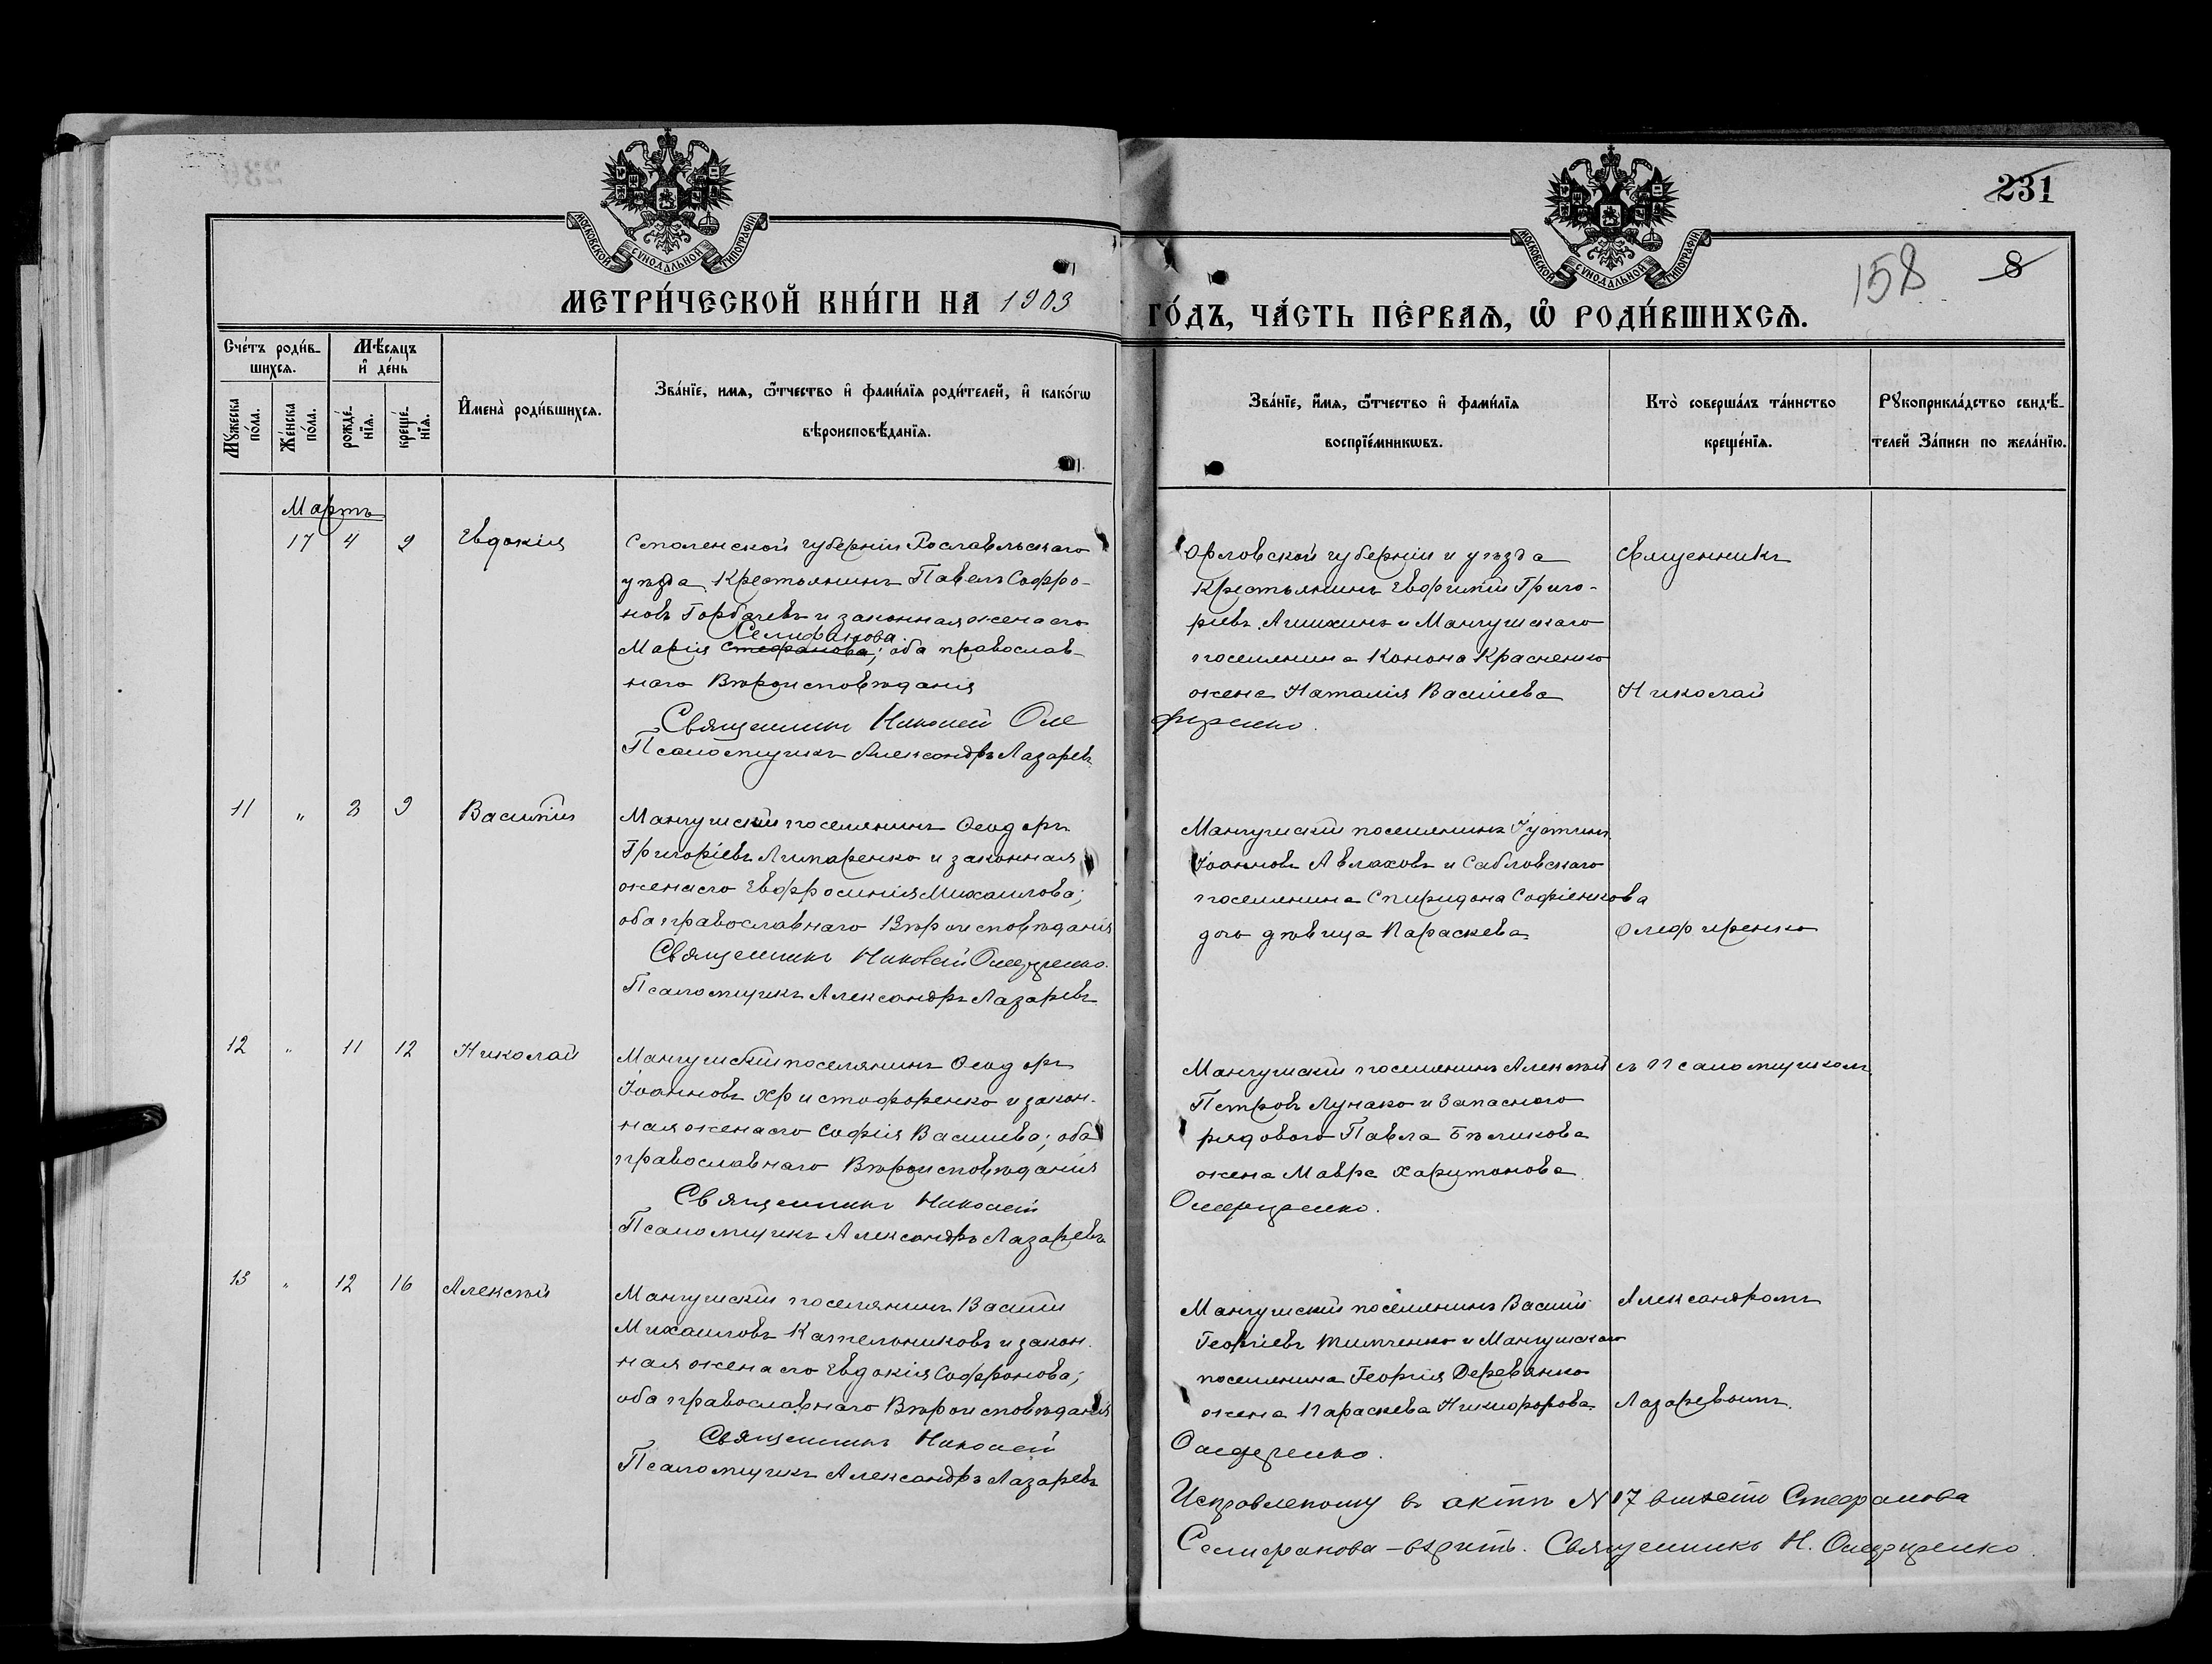 231
158
8
МОСКОВСКОЙ СѴНОДАЛЬНОЙ ТИПОГРАФІИ
МОСКОВСКОЙ СѴНОДАЛЬНОЙ ТИПОГРАФІИ
МЕТРИ́ЧЕСКОЙ КНИ́ГИ НА 1903 ГО́ДЪ, ЧА́СТЬ ПЕ́РВАѦ, Ѡ РОДИ́ВШИХСѦ.
Сче́тъ роди́в-
шихсѧ.
Мꙋ́жеска по́ла.
Же́нска по́ла.
Мѣ́сѧцъ
и де́нь
рожде́-
нїѧ.
креще́-
нїѧ.
И҆мена̀ роди́вшихсѧ.
Зва́нїе, имѧ, ѻ҆́тчество и҆ фами́лїѧ роди́телей, и҆ како́гѡ
вѣроисповѣ́данїѧ.
Зва́нїе, и҆́мѧ, ѻ҆́тчество и҆ фами́лїѧ
воспрїе́мникѡвъ.
Кто̀ соверша́лъ та́инство
креще́нїѧ.
Рꙋкоприкла́дство свидѣ́-
телей За́писи по жела́нїю.
Мартъ
17 4 9 Евдокія
Смоленской губерніи Рославльскаго
уѣзда Крестьянинъ Павелъ Софро-
новъ Горбачевъ и законная жена его
Селифанова
Марія Стефанова; оба православ-
наго Вѣроисповѣданія
Священникъ Николай Оле
Псаломщикъ Александръ Лазаревъ
Орловской губерніи и уѣзда
Крестьянинъ Евфимій Григо-
ріевъ Алихинъ и Мангушскаго
поселянина Конона Красненко
жена Наталія Васильева
фиренко.
Священникъ
Николай
11 " 8 9 Василій
Мангушскій поселянинъ Ѳеодоръ
Григоріевъ Липаренко и законная
жена его Евфросинія Михаилова;
оба православнаго Вѣроисповѣданія
Священникъ Николай Олефиренко.
Псаломщикъ Александръ Лазаревъ
Мангушскій поселянинъ Іустинъ
Іоанновъ Авлаховъ и Сабловскаго
поселянина Спиридона Софіенкова
дочь дѣвица Параскева
Олефиренко
12 " 11 12 Николай
Мангушскій поселянинъ Ѳеодоръ
Іоанновъ Христофоренко и закон-
ная жена его Софія Васильева; оба
православнаго Вѣроисповѣданія
Священникъ Николай
Псаломщикъ Александръ Лазаревъ
Мангушскій поселянинъ Алексѣй
Петровъ Лунако и Запаснаго
рядового Павла Бѣликова
жена Мавра Харитонова
Олефиренко.
съ Псаломщикомъ
13 " 12 16 Алексѣй
Мангушскій поселянинъ Василій
Михаиловъ Кательниковъ и закон-
ная жена его Евдокія Софронова;
оба православнаго Вѣроисповѣданія
Священникъ Николай
Псаломщикъ Александръ Лазаревъ
Мангушскій поселянинъ Василій
Георгіевъ Тимченко и Мангушскаго
поселянина Георгія Деревянко
жена Параскева Никифорова
Олефиренко.
Александромъ
Лазаревымъ.
Исправленому въ актѣ N 17 вмѣсто Стефанова
Селифанова – вѣрить. Священникъ Н. Олефиренко.